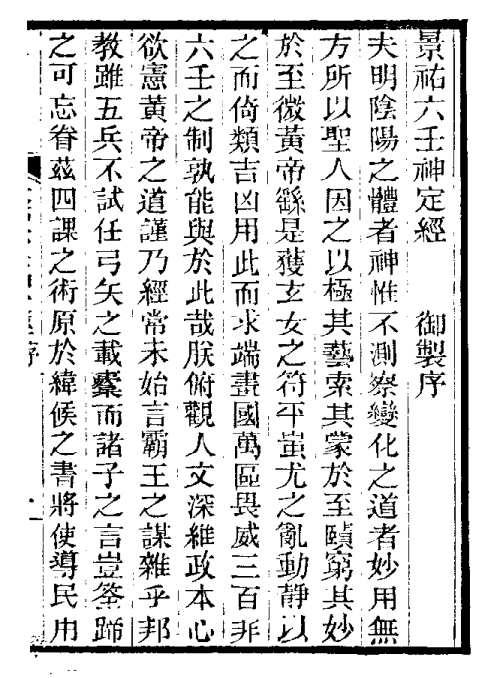 景祐六壬神定經　御製序
夫明陰陽之體者神惟不測察變化之道者妙用無
方所以聖人因之以極其藝索其蒙於至賾窮其妙
於至微黃帝繇是獲玄女之符平蚩尤之亂動靜以
之而倚類吉凶用此而求端畫國萬區畏威三百非
六壬之制孰能與於此哉朕俯觀人文深維政本心
欲憲黃帝之道謹乃經常未始言霸王之謀雜乎邦
教雖五兵不試任弓矢之載櫜而諸子之言豈筌蹄
之可忘眷茲四課之術原於緯候之書將使導民用